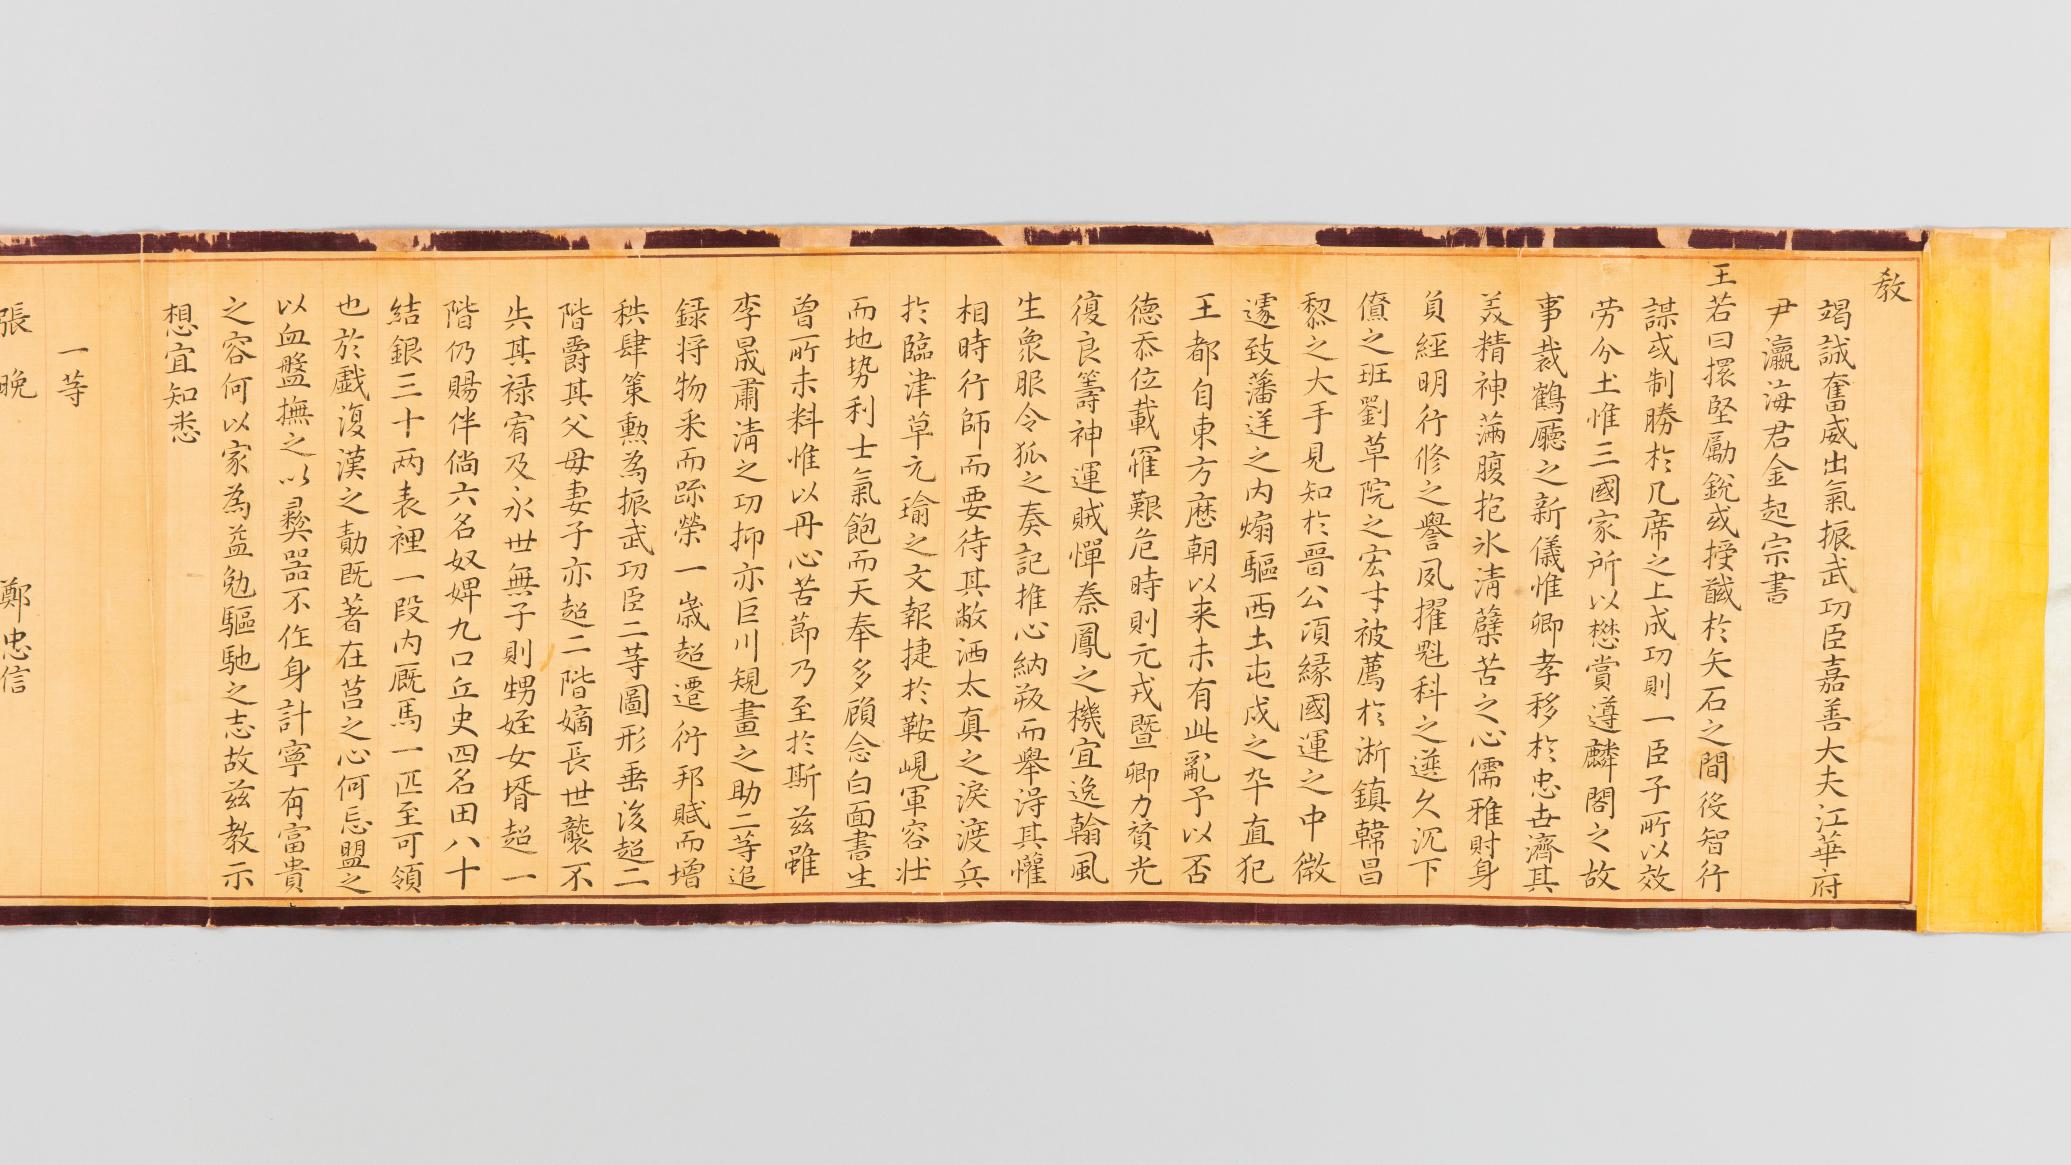 教
竭誠奮威出氣振武功臣嘉善大夫江華府
尹瀛海君金起宗書
王若曰擐堅勵銳或授馘於矢石之間役智行
謀或制勝於几席之上成功則一臣子所以效
劳分土惟三國家所以懋賞遵麟閣之故
事裁鶴廳之新儀惟卿孝移於忠世濟其
美精神滿腹抱氷清蘗苦之心儒雅財身
負經明行修之譽夙擢魁科之選久沉下
僚之班劉草院之宏才被薦於淅鎮韓昌
黎之大手見知於晉公湏緣國運之中微
遽致藩逆之内煽驅西土屯戍之卒直犯
王都自東方歷朝以来未有此亂予以否
德忝位載罹艱危時則元戎暨卿力賛光
復良籌神運賊憚秦鳳之機宜逸翰風
生衆服令狐之奏記推心納叛而舉得其懽
相時行師而要待其敝洒太真之淚渡兵
於臨津草元瑜之文報捷於鞍峴軍容壮
而地勢利士氣飽而天奉多顧念白面書生
曾所未料惟以丹心苦節乃至於斯茲雖
李晟肅清之功抑亦巨川規畫之助二等追
録将物采而跡榮一歲超遷衍邦賦而增
秩肆策勲為振武功臣二等圖形垂後超二
階爵其父母妻子亦超二階嫡長世襲不
失其禄宥及永世無子則甥姪女壻超一
階仍賜伴倘六名奴婢九口丘史四名田八十
結銀三十两表裡一段内厩馬一匹至可領
也於戲復漢之勣既著在莒之心何忘盟之
以血盤撫之以彝器不作身計寧有富貴
之容何以家為益勉驅馳之志故茲教示
想宜知悉
一等
張晩　鄭忠信